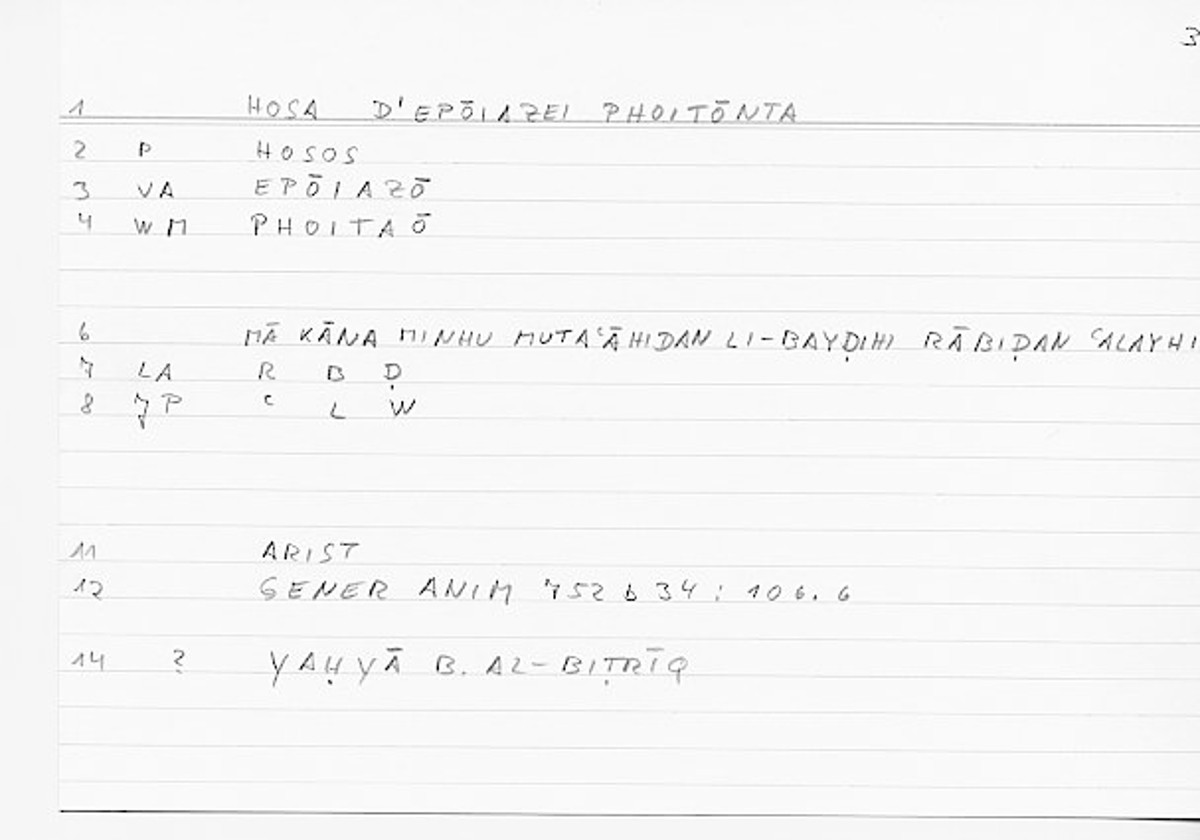 3
1 HOSA D'EPŌIAZEI PHOITŌNTA
2 P HOSOS
3 VA EPŌIAZŌ
4 WM PHOITAŌ
6 MĀ KĀNA MINHU MUTAʿĀHIDAN LI-BAYḌIHI RĀBIḌAN ʿALAYHI
7 LA R B Ḍ
8 JP ʿ L W
11 ARIST
12 GENER ANIM 752 b 34 : 106.6
14 ? YAḤYĀ B. AL-BIṬRĪQ